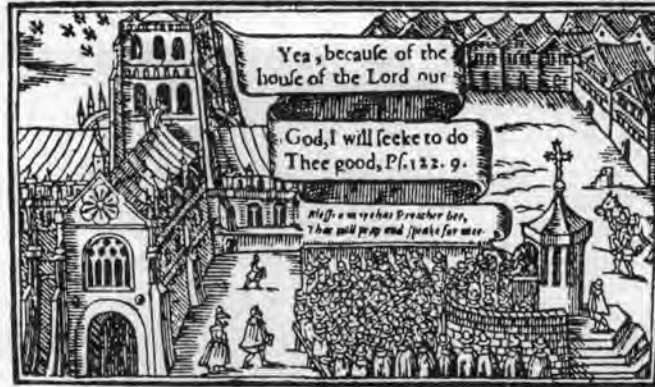 Yea, becauſe of the
houſe of the Lord our
God, I will ſeeke to do
Thee good, Pſ. 122. 9.
that Preacher
That will pray and ſpeake for mee.